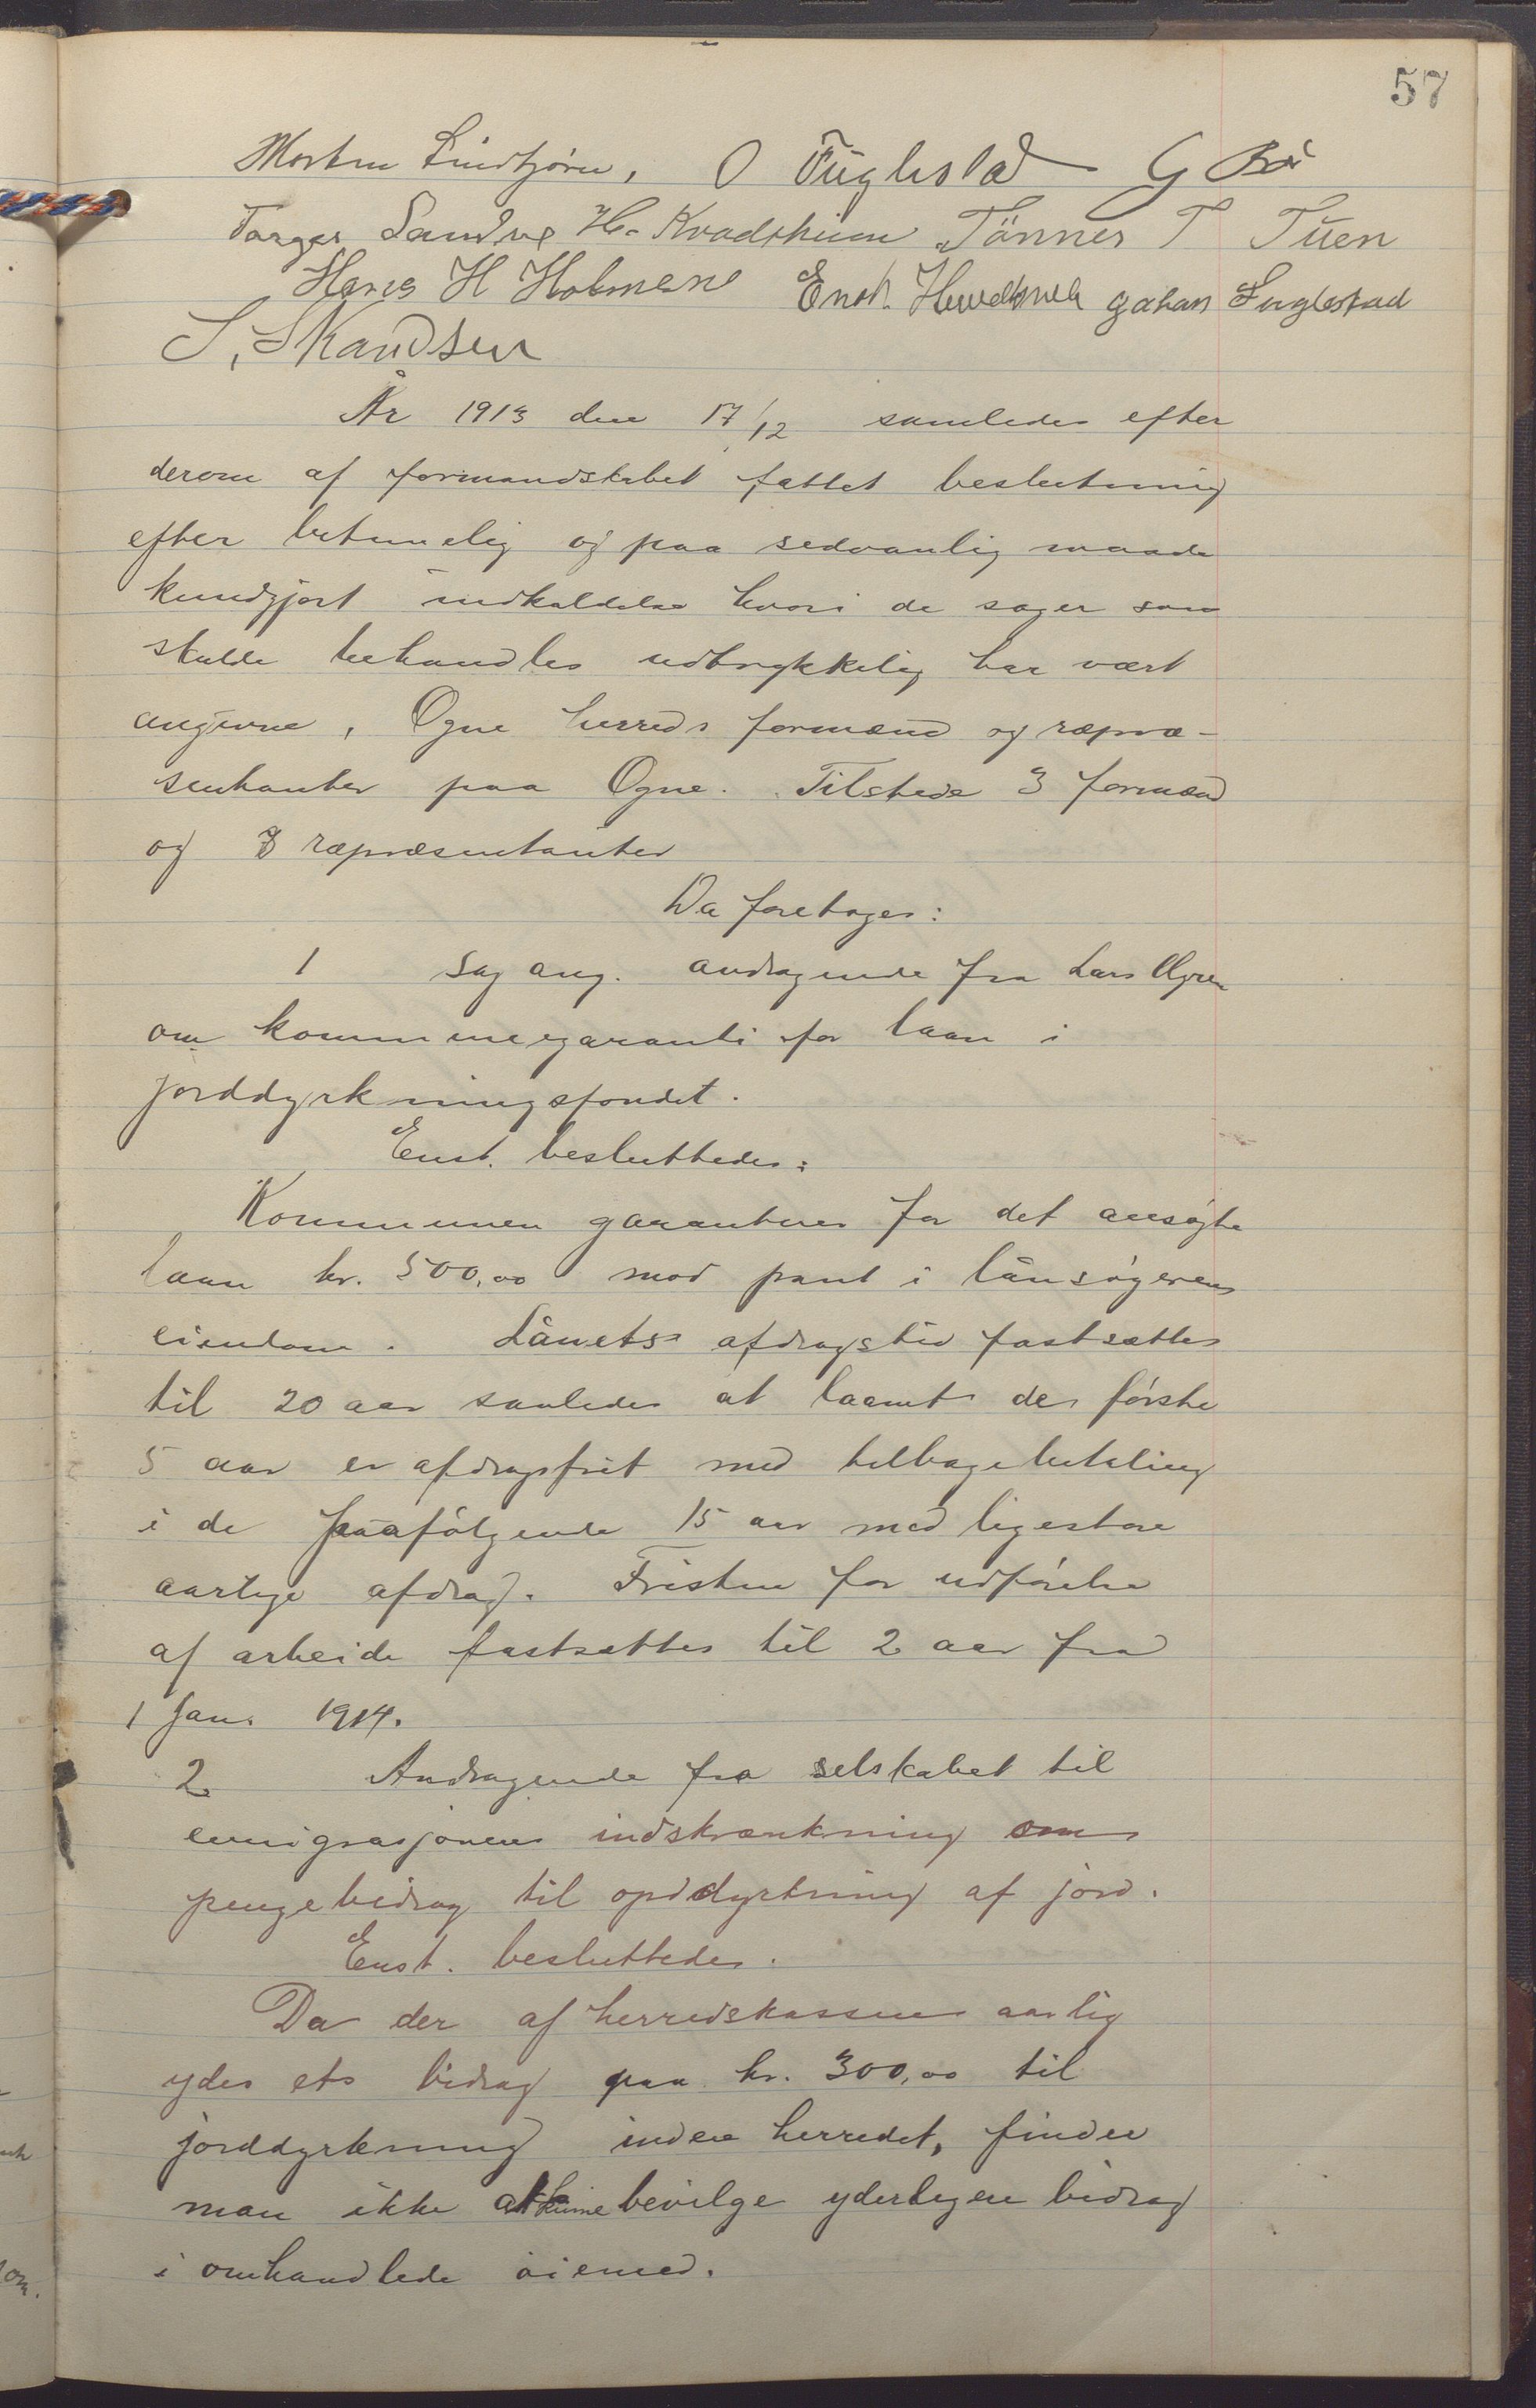 57
Morten Lindtjörn, O Fuglestad G Bö
Torger Sandve H. Kvadsheim Tönnes T Tuen
Hans H Holmene Enok Gahan Fuglestad
S, Skandsen
År 1913 den 17/12 samledes efter
derom af formandskabet fattet beslutning
efter betimelig og paa sedvanlig maade
kundgjort indkaldelse hvori de sager som
skulde behandles udtrykkelig har vært
angivne, Ogne herreds formænd og repræ-
sentanter paa Ogne. Tilstede 3 formænd
og 8 repræsentanter
Da foretoges:
1 Sag ang. andragende fra Lars
om kommunegaranti for laan i
jorddyrkningsfondet.
Enst. besluttedes:
Kommunen garanterer for det ansøgte
laan kr. 500,00 mod pant i lånsøgerens
eiendom. Lånets afdragstid fastsættes
til 20 aar saaledes at laanet de første
5 aar er afdragsfrit med tilbagebetaling
i de paafølgende 15 aar med ligestore
aarlige afdrag. Fristen for udførelse
af arbeide fastsættes til 2 aar fra
1 Jan. 1914.
2 Andragende fra selskabet til
emigrasjonens indskrænkning om
pengebidrag til opddyrkning af jord.
Enst. besluttedes.
Da der af herredskassen aarlig
ydes ets bidrag paa kr. 300,00 til
jorddyrkning inden herredet, finder
man ikke at kunne bevilge yderligere bidrag
i omhandlede øiemed.